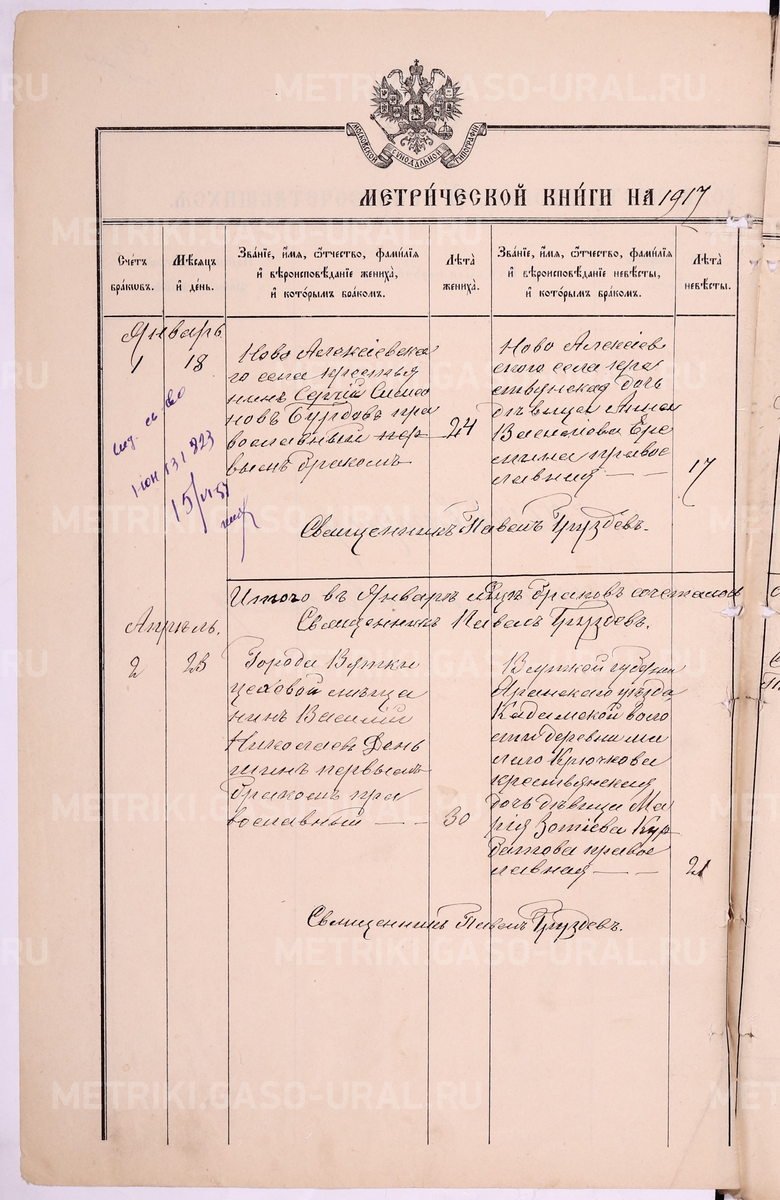 МОСКОВСКОЙ СѴНОДАЛЬНОЙ ТИПОГРАФІИ
МЕТРИ́ЧЕСКОЙ КНИ́ГИ НА 1917
Сче́тъ бра́кѡвъ.
Мѣ́сяцъ и҆ де́нь.
Зва́нїе, и҆́мя, ѻ҆́тчество, фами́лїя и҆ вѣроисповѣ́данїе жениха̀, и҆ кото́рымъ бра́комъ.
Лѣ́та жениха̀.
Зва́нїе, и҆́мя, ѻ҆́тчество, фами́лїя и҆ вѣроисповѣ́данїе невѣ́сты, и҆ кото́рымъ бра́комъ.
Лѣ́та невѣ́сты.
Январь
1
18
Ново Алексѣевска
го села крестья
нинъ Сергій Симо
новъ Бурдовъ пра
вославный пер
вымъ бракомъ
24
Ново Алексѣев
ского села кре
стьянская дочь
дѣвица Анна
Васильева Ере
мина правос
лавная
17
15/VI 57
Священникъ Павелъ Груздевъ.
Итого въ Январѣ мѣсяцѣ браковъ сочеталось
Священникъ Павелъ Груздевъ.
Апрѣль.
2
23
Города Вятки
цеховой мѣща
нинъ Василій
Николаевъ День
шинъ первымъ
бракомъ пра
вославный
30
Вятской губерніи
Яранскаго уѣзда
Кадамской воло
сти деревни Ма
лаго Крючкова
крестьянская
дочь дѣвица Ма
рія Зотіева Кур
батова правос
лавная
21
Священникъ Павелъ Груздевъ.
METRIKI.GASO-URAL.RU